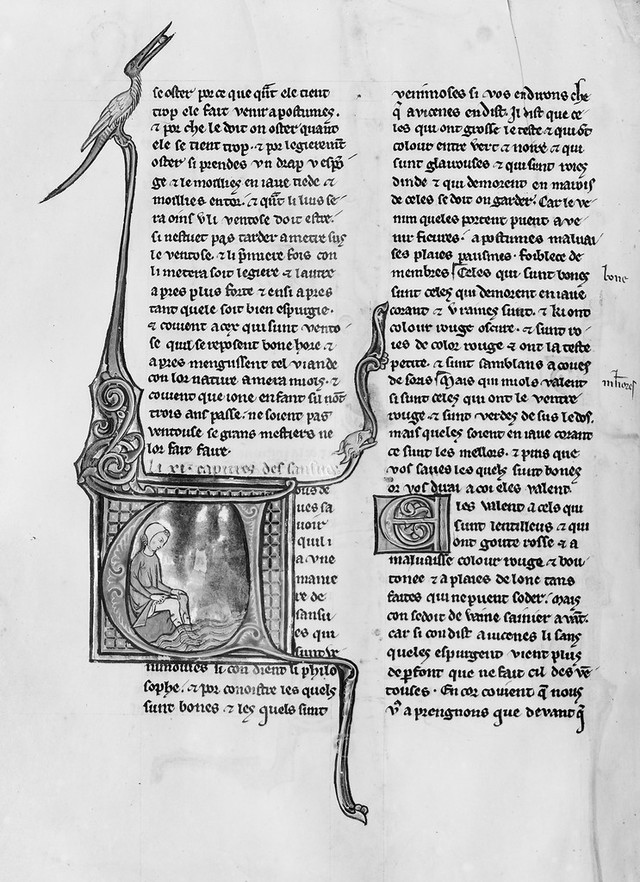 se oster por ce que qñt ele tient
trop ele fait venir apostumes.
⁊ por che le doit on oster quant
ele se tient trop. ⁊ por legierem̃t
oster si prendes vn drap v espõ
ge ⁊ le mollies en iaue tiede ⁊
mollies entor. ⁊ qñt li lius se
ra oins v li ventose doit estre.
si nestuet pas tarder a metre sus
le ventose. ⁊ li p̃miere fois con
li metera soit legiere ⁊ lautre
apres plus forte ⁊ ensi apres
tant quele soit bien espurgie.
⁊ couient a cex qui sunt vento
se quil se reposent bone hore ⁊
apres mengussent tel viande
con lor nature amera miols ⁊
couient que ione enfant sil nõt
trois ans passe. ne soient pas
ventouse se grans mestiers ne
lor fait faire.
li xi. capitres des sansues
ous de
ues sa
uoir
quil i
a vne
manie
re de
sansu
es qui
sunt ve
nimouses si con dient li philo
sophe. ⁊ por conoistre les quels
sunt bones ⁊ les quels sunt
venimoses si vos en dirons che
q̃ auicenes en dist. Il dist que ce
les qui ont grosse le teste ⁊ qui õt
colour entre vert ⁊ noire ⁊ qui
sunt glauouses ⁊ qui sunt roies
dinde ⁊ qui demorent en mauois
de celes se doit on garder. Car le ve
nim queles portent puent a ve
nir figures. apostumes maluai
ses plaies pausmes. foiblece de
membres Celes qui sunt bones
sunt celes qui demorent en iaue
corant ⁊ v raines sunt. ⁊ ki ont
colour rouge oscure. ⁊ sunt ro
ies de color rouge ⁊ ont la teste
petite. ⁊ sunt samblans a coues
de soris Mais qui miols valent
si sunt celes qui ont le ventre
rouge ⁊ sunt verdes de sus le dos.
mais queles soient en iaue corant
ce sunt les mellors. ⁊ puis que
vos saues les quels sunt bones
or vos dirai a coi eles valent.
Eles valent a cels qui
sunt lentilleus ⁊ qui
ont goute rosse ⁊ a
maluaisse colour rouge ⁊ bou
tonee ⁊ a plaies de lonc tans
faites qui ne puent soder. mais
con se doit de vaine sainier auãt.
car si con dist auicenes li sans
queles espurgent vient plus
de p̃font que ne fait cil des vẽ
touses. En cor couient q̃ nous
v̾ aprengnons que deuant q̃
bone